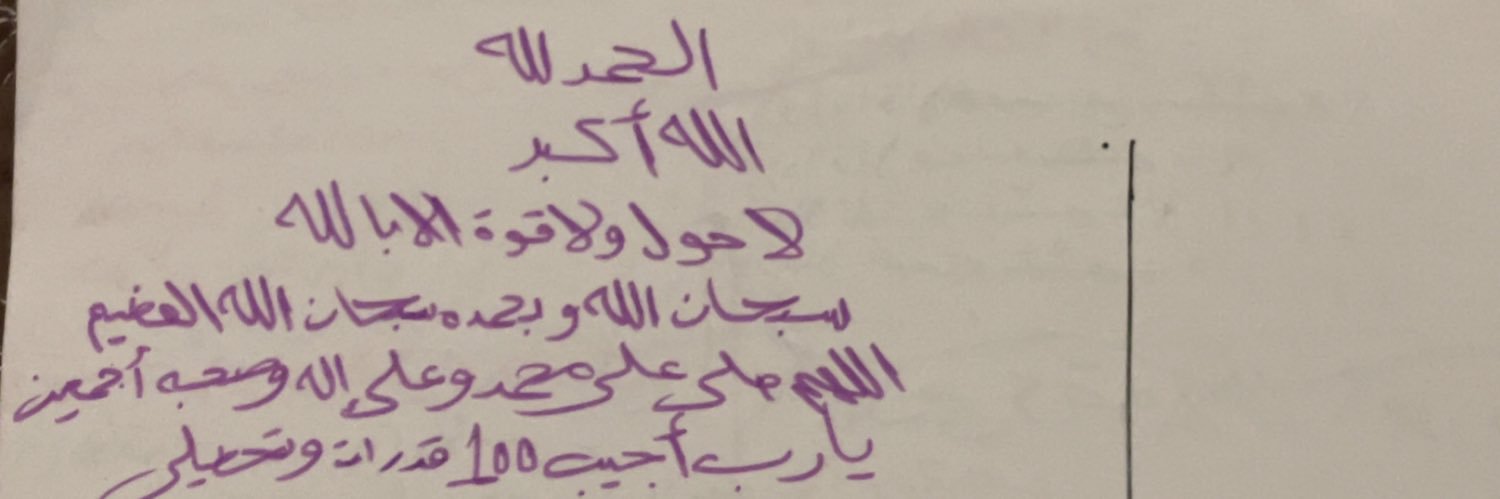 الحمد لله
الله أكبر
لا حول ولا قوة الا بالله
سبحان الله وبحمده سبحان الله العضيم
اللهم صلي على محمد وعلى إله وصحبه أجمعين
يارب أجيب 100 قدرات وتحصيلي